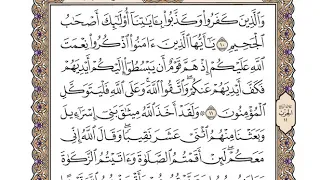 وَٱلَّذِينَ كَفَرُوا۟ وَكَذَّبُوا۟ بِـَٔايَـٰتِنَآ أُو۟لَـٰٓئِكَ أَصْحَـٰبُ
ٱلْجَحِيمِ ١٠ يَـٰٓأَيُّهَا ٱلَّذِينَ ءَامَنُوا۟ ٱذْكُرُوا۟ نِعْمَتَ
ٱللَّهِ عَلَيْكُمْ إِذْ هَمَّ قَوْمٌ أَن يَبْسُطُوٓا۟ إِلَيْكُمْ أَيْدِيَهُمْ
فَكَفَّ أَيْدِيَهُمْ عَنكُمْ ۖ وَٱتَّقُوا۟ ٱللَّهَ ۚ وَعَلَى ٱللَّهِ فَلْيَتَوَكَّلِ
ٱلْمُؤْمِنُونَ ١١ ۞ وَلَقَدْ أَخَذَ ٱللَّهُ مِيثَـٰقَ بَنِىٓ إِسْرَٰٓءِيلَ
وَبَعَثْنَا مِنْهُمُ ٱثْنَىْ عَشَرَ نَقِيبًا ۖ وَقَالَ ٱللَّهُ إِنِّى
مَعَكُمْ ۖ لَئِنْ أَقَمْتُمُ ٱلصَّلَوٰةَ وَءَاتَيْتُمُ ٱلزَّكَوٰةَ